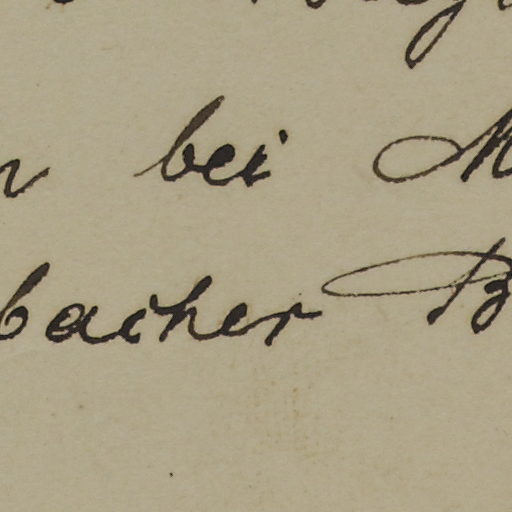 bei M
bacher B